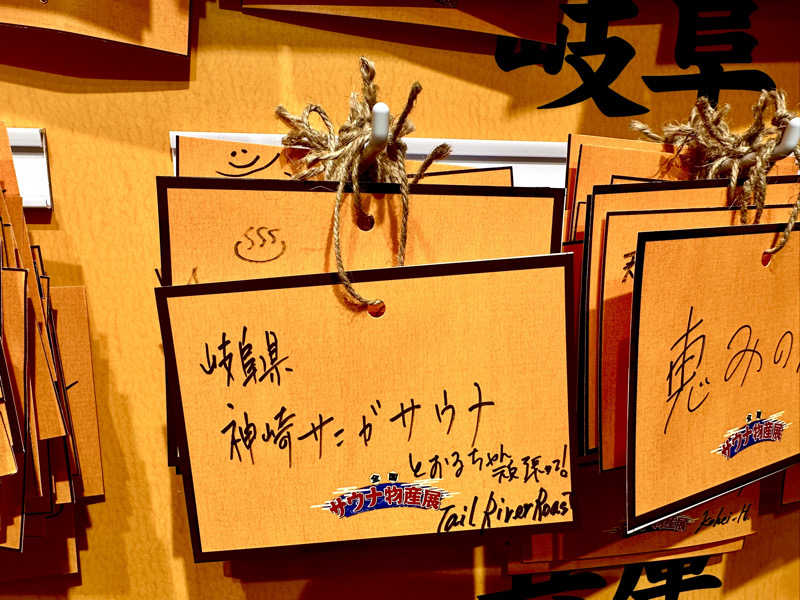 岐阜
岐阜県
神崎サニガサウナ
とおるちゃん
頑張って!
全国
サウナ物産展
Tail River Roast
恵みの
全国
サウナ物産展
Kohei.H
兵庫